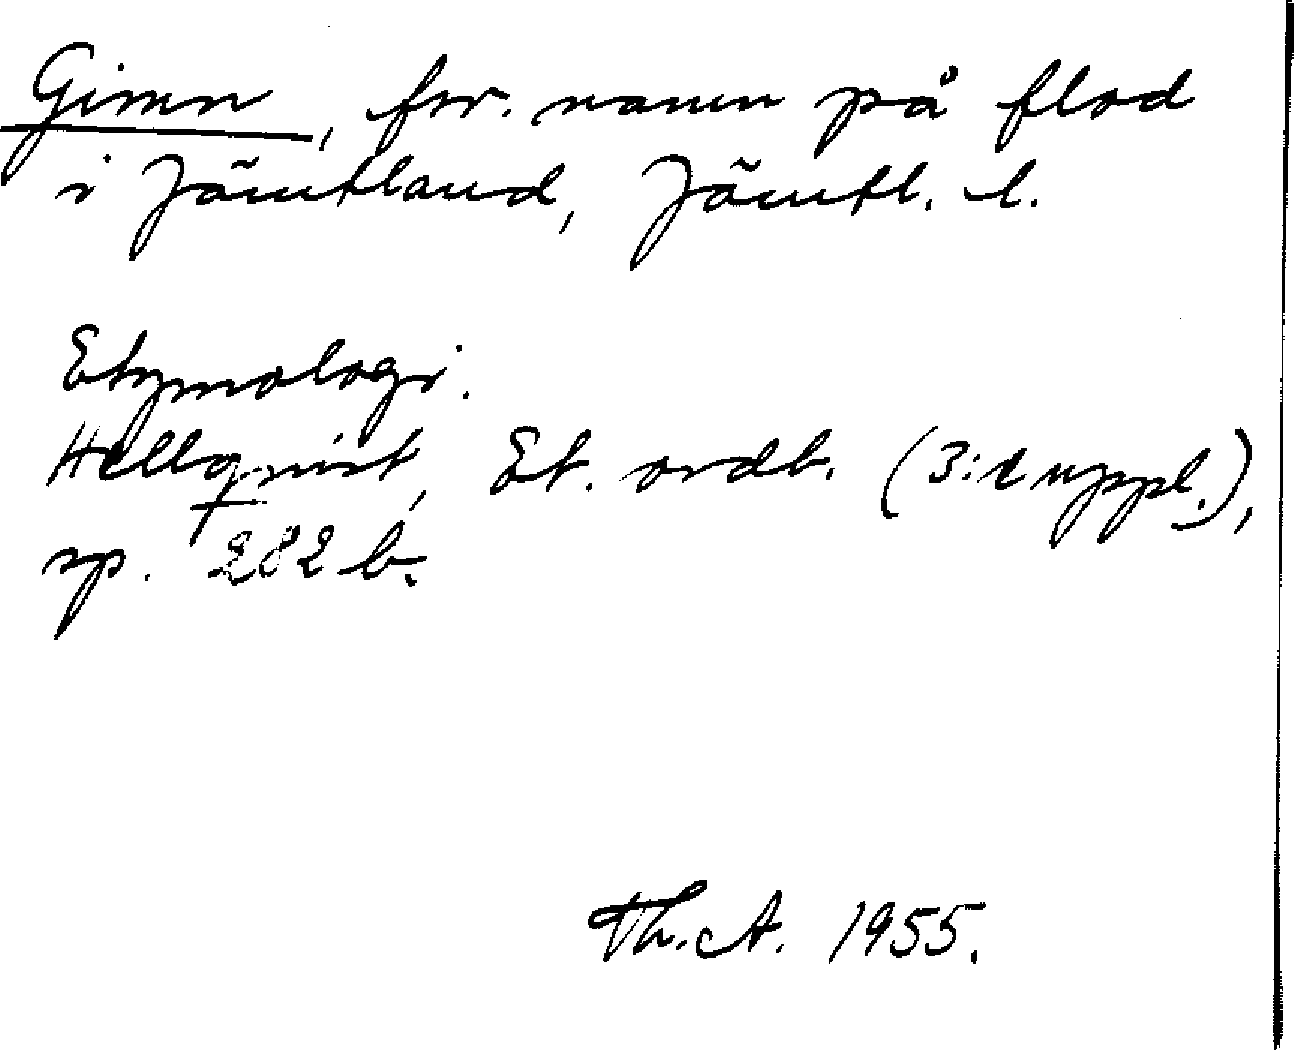 Gimn, fsv. namn på flod
i Jämtland, Jämtl. l.
Etymologi.
Hellquist, Et. ordb. (3:e uppl.),
sp. 282 b.
Th. A. 1955.